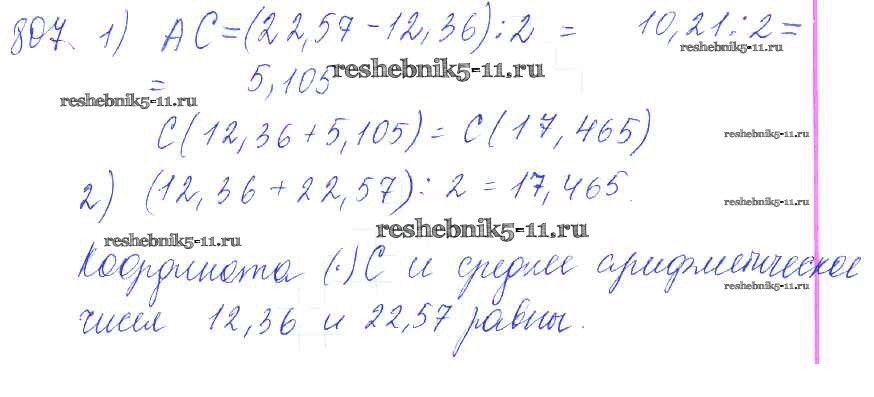 807. 1) AC=(22,57-12,36):2 = 10,21:2=
reshebnik5-11.ru
= 5,105
reshebnik5-11.ru
reshebnik5-11.ru
C(12,36+5,105)= C(17,465)
reshebnik5-11.ru
2) (12,36+22,57): 2 =17,465.
reshebnik5-11.ru
reshebnik5-11.ru
reshebnik5-11.ru
Координата (·) C и среднее арифметическое
reshebnik5-11.ru
чисел 12,36 и 22,57 равны.